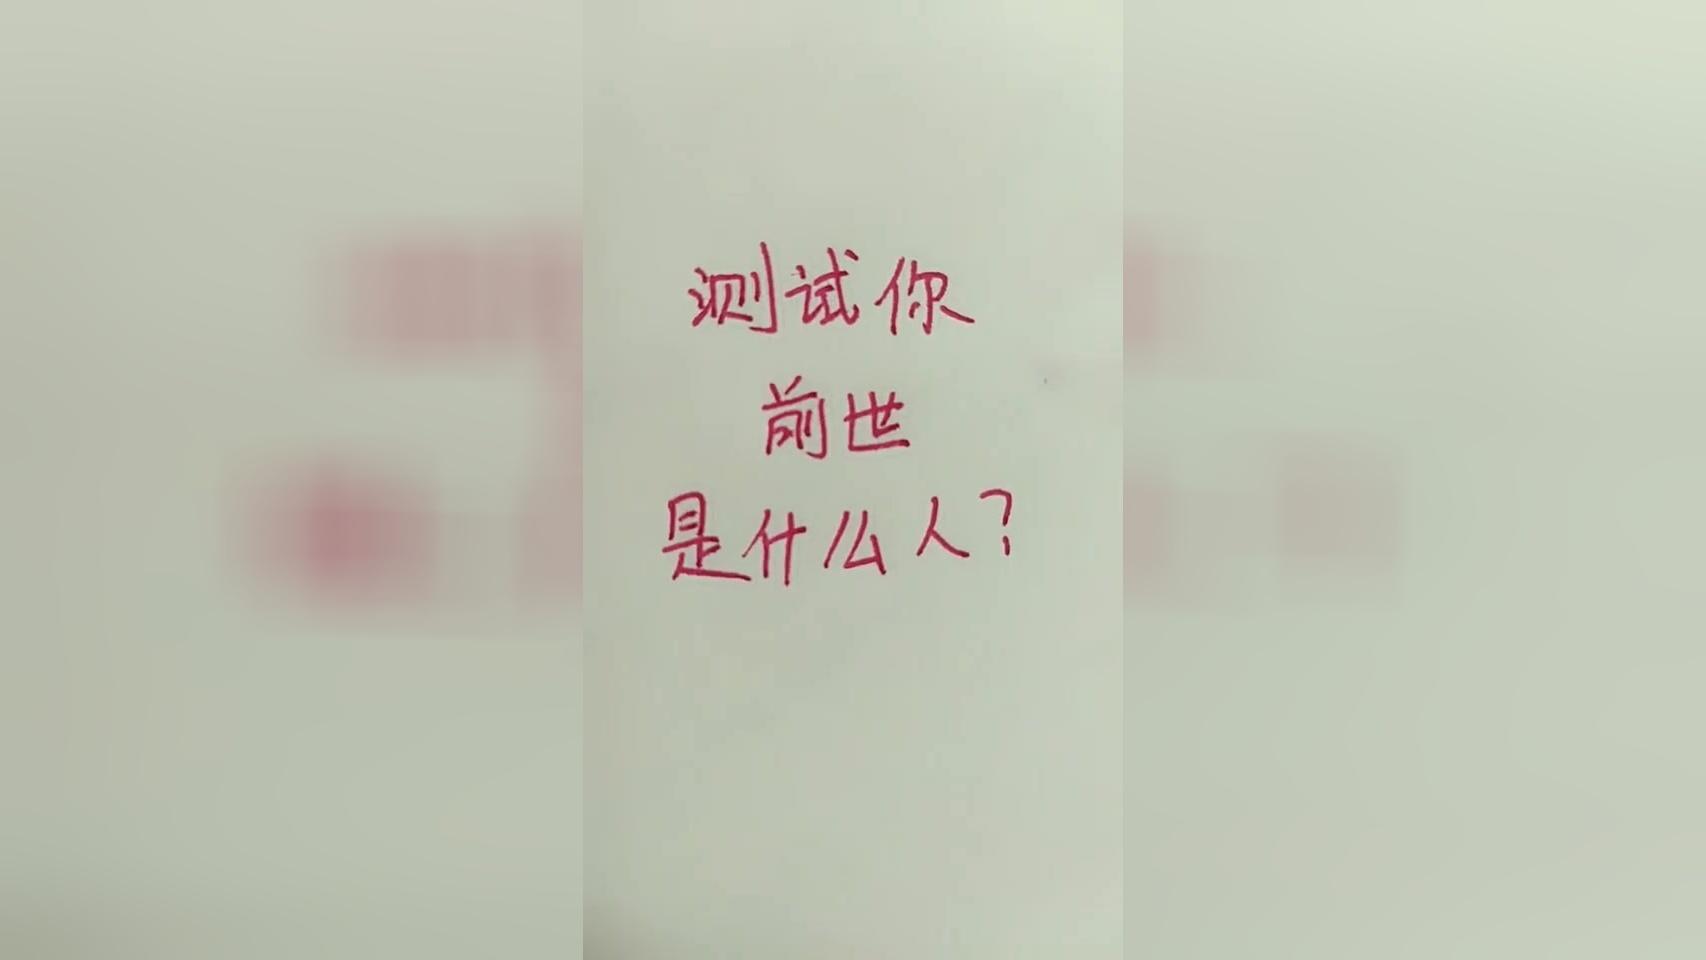 测试你
前世
是什么人?